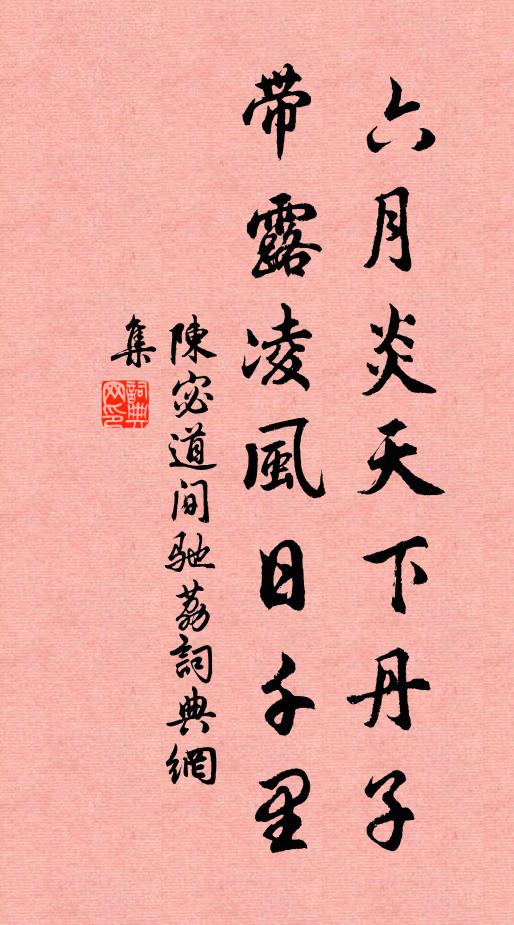 六月炎天下丹子
带露凌風日千里
陳宓道间驰荔詞典網
集
詞典網印